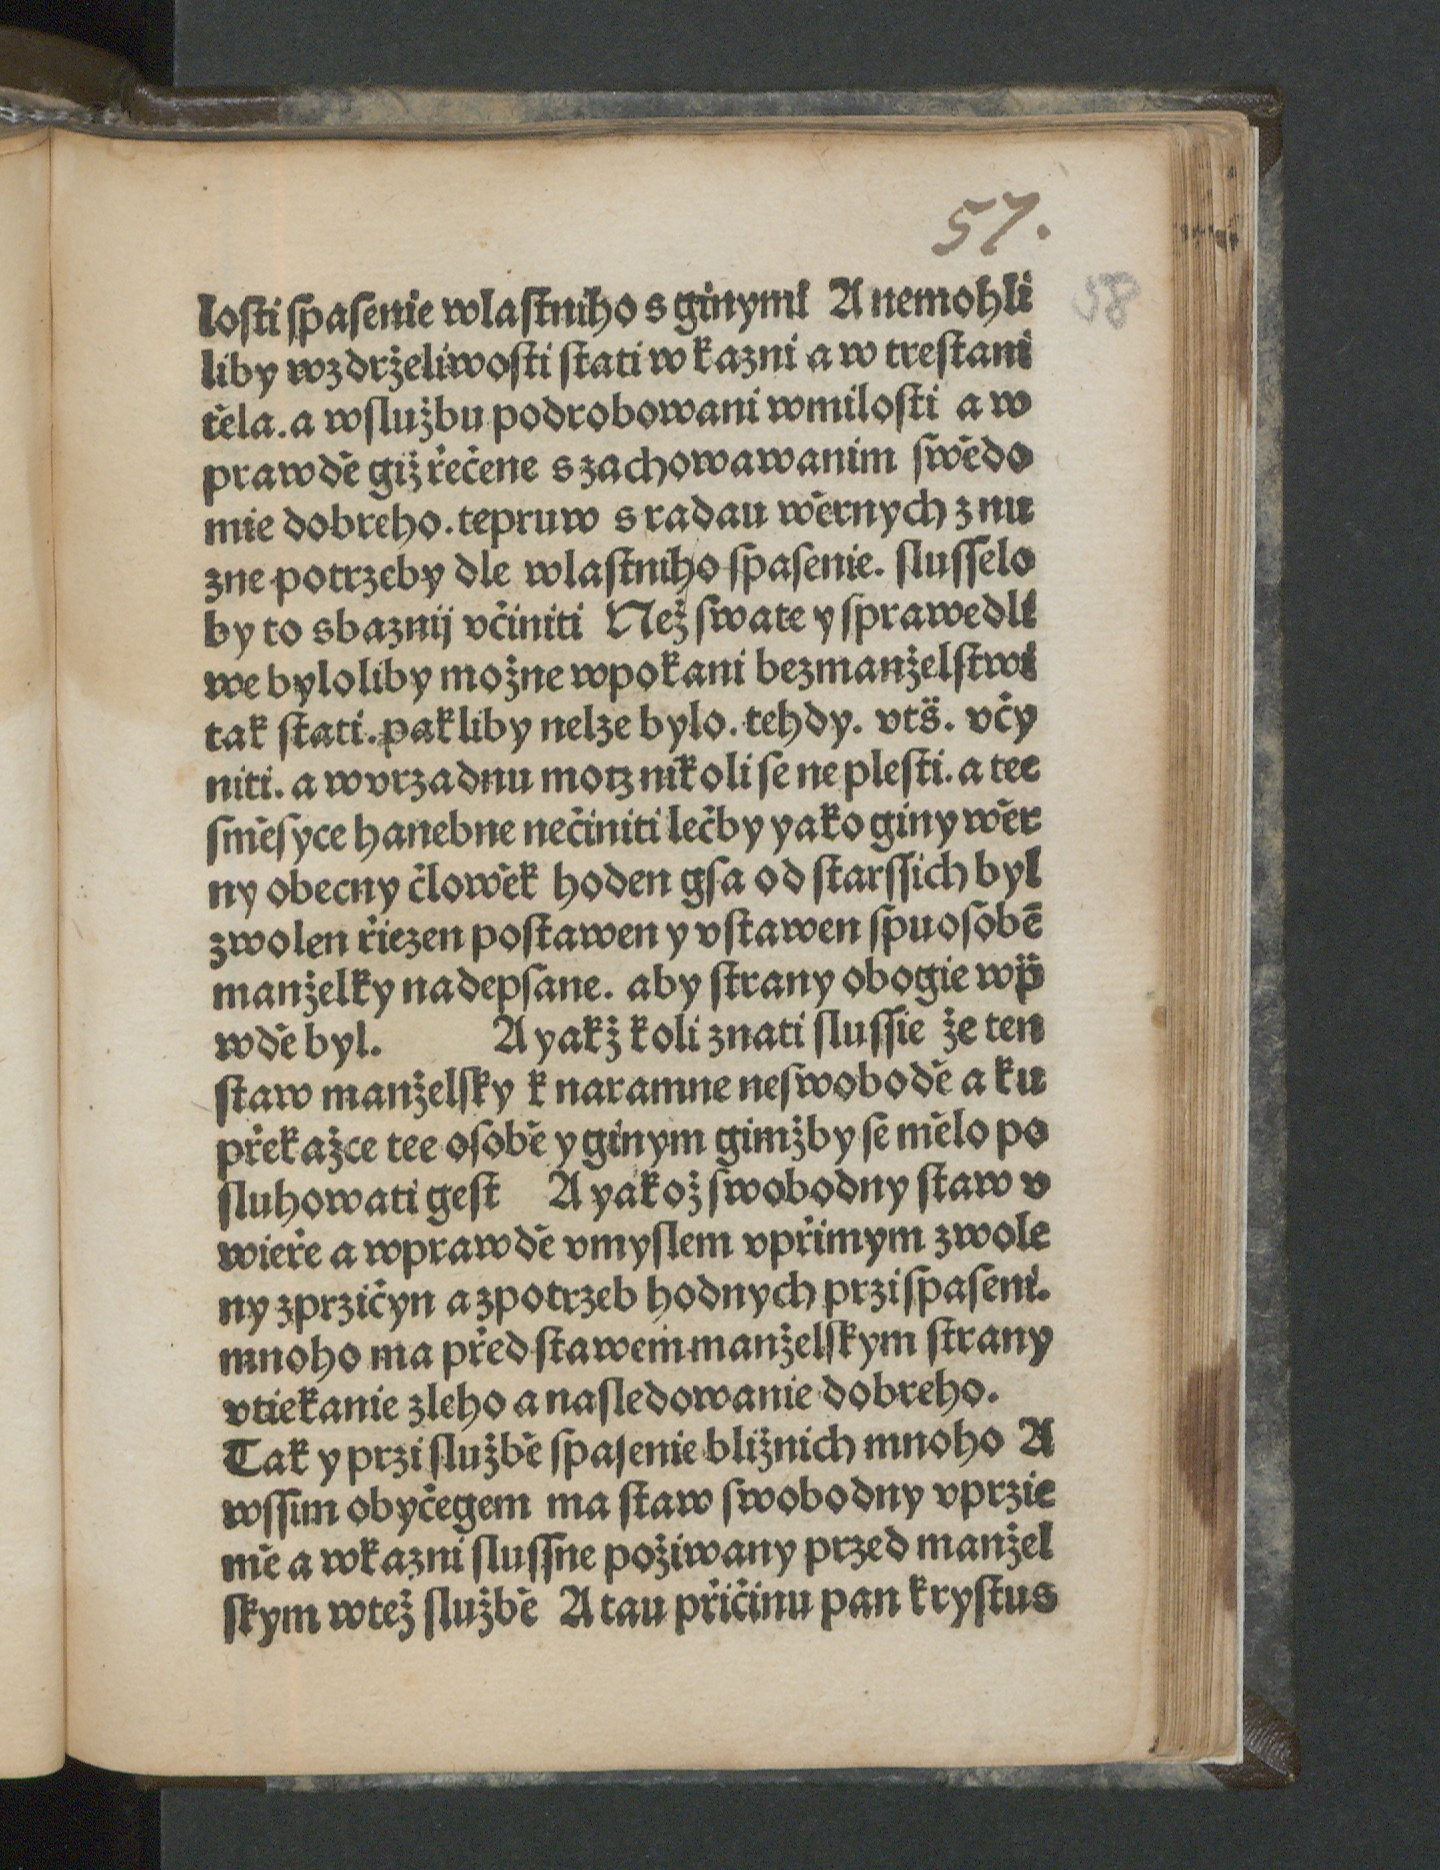 57.
58
losti spasenie wlastniho s ginymi A nemohli
liby wzdrželiwosti stati w kazni a w trestani
těla. a wslužbu podrobowani wmilosti a w
prawdě giž řečene s zachowawanim swědo
mie dobreho. tepruw s radau wěrnych z nu
zne potrzeby dle wlastniho spasenie. slusselo
by to sbaznij včiniti Než swate y sprawedli
we byloliby možne wpokani bezmanželstwi
tak stati. pakliby nelze bylo. tehdy. vts̈. včy
niti. a wvrzadnu motz nikoli se ne plesti. a tee
směsyce hanebne nečiniti lečby yako giny wěr
ny obecny člowěk hoden gsa od starssich byl
zwolen řiezen postawen y vstawen spuosobē
manželky nadepsane. aby strany obogie wp̈
wdě byl. A yakž koli znati slussie že ten
staw manželsky k naramne neswobodě a ku
překažce tee osobě y ginym gimžby se mělo po
sluhowati gest A yakož swobodny staw v
wieře a wprawdě vmyslem vpřimym zwole
ny zprzičyn a zpotrzeb hodnych przi spaseni.
mnoho ma před stawem manželskym strany
vtiekanie zleho a nasledowanie dobreho.
Tak y przi službě spasenie bližnich mnoho A
wssim obyčegem ma staw swobodny vprzie
mě a wkazni slussne požiwany przed manžel
skym wtež službě A tau přičinu pan krystus